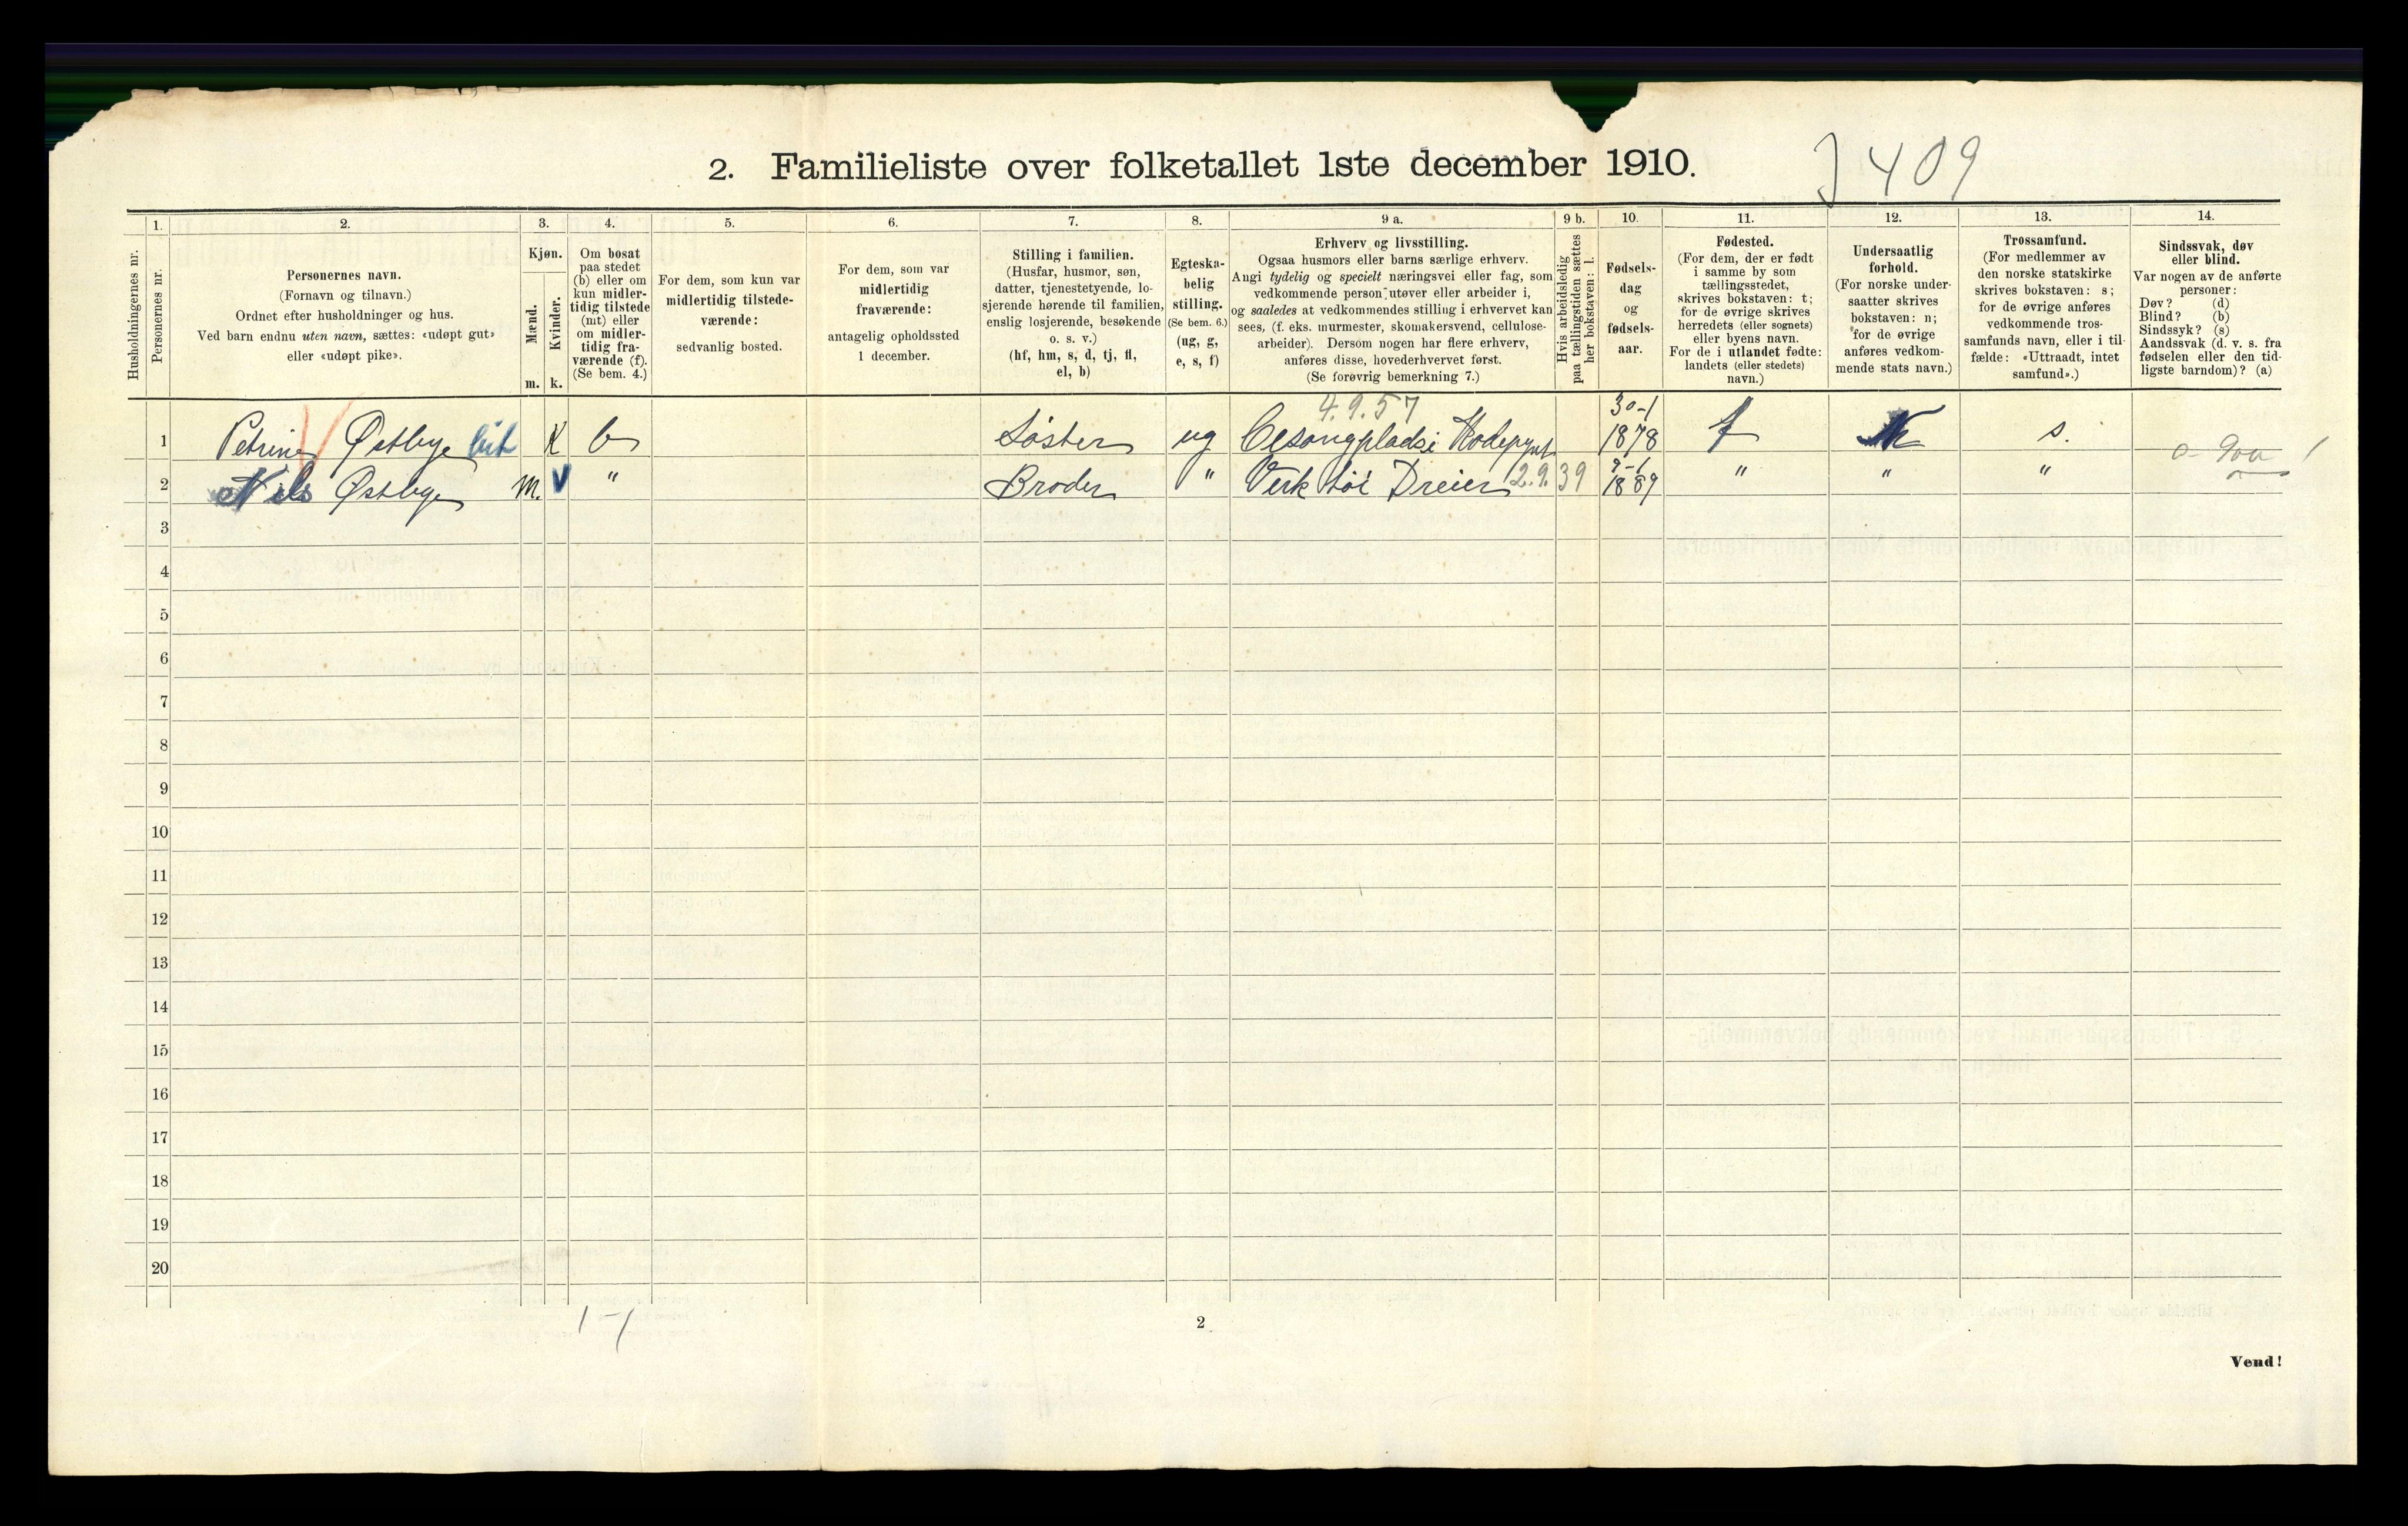 2. Familieliste over folketallet 1ste december 1910.
409
Husholdningernes nr.
1. Personernes nr.
2. Personernes navn.
(Fornavn og tilnavn.)
Ordnet efter husholdninger og hus.
Ved barn endnu uten navn, sættes: «udøpt gut»
eller «udøpt pike».
3. Kjøn.
Mænd. m.
Kvinder. k.
4. Om bosat
paa stedet
(b) eller om
kun midler-
tidig tilstede
(mt) eller
om midler-
tidig fra-
værende (f).
(Se bem. 4.)
5. For dem, som kun var
midlertidig tilstede-
værende:
sedvanlig bosted.
6. For dem, som var
midlertidig
fraværende:
antagelig opholdssted
1 december.
7. Stilling i familien.
(Husfar, husmor, søn,
datter, tjenestetyende, lo-
sjerende hørende til familien,
enslig losjerende, besøkende
o. s. v.)
(hf, hm, s, d, tj, fl,
el, b)
8. Egteska-
belig
stilling.
(Se bem. 6.)
(ug, g,
e, s, f)
9 a. Erhverv og livsstilling.
Ogsaa husmors eller barns særlige erhverv.
Angi tydelig og specielt næringsvei eller fag, som
vedkommende person utøver eller arbeider i,
og saaledes at vedkommendes stilling i erhvervet kan
sees, (f. eks. murmester, skomakersvend, cellulose-
arbeider). Dersom nogen har flere erhverv,
anføres disse, hovederhvervet først.
(Se forøvrig bemerkning 7.)
9 b. Hvis arbeidsledig
paa tællingstiden sættes
her bokstaven: l.
10. Fødsels-
dag
og
fødsels-
aar.
11. Fødested.
(For dem, der er født
i samme by som
tællingsstedet,
skrives bokstaven: t;
for de øvrige skrives
herredets (eller sognets)
eller byens navn.
For de i utlandet fødte:
landets (eller stedets)
navn.)
12. Undersaatlig
forhold.
(For norske under-
saatter skrives
bokstaven: n;
for de øvrige
anføres vedkom-
mende stats navn.)
13. Trossamfund.
(For medlemmer av
den norske statskirke
skrives bokstaven: s;
for de øvrige anføres
vedkommende tros-
samfunds navn, eller i til-
fælde: «Uttraadt, intet
samfund».)
14. Sindssvak, døv
eller blind.
Var nogen av de anførte
personer:
Døv? (d)
Blind? (b)
Sindssyk? (s)
Aandssvak (d. v. s. fra
fødselen eller den tid-
ligste barndom)? (a)
4.9.57 30-1
1 Petrine Østbye K b Søster ug 1878 s.
2 Nils Østbye m. " Broder " Verktøi Dreier 2.9.39 9-1 1889 " " "
3
4
5
6
7
8
9
10
11
12
13
14
15
16
17
18
19
20
1-1
2
Vend!